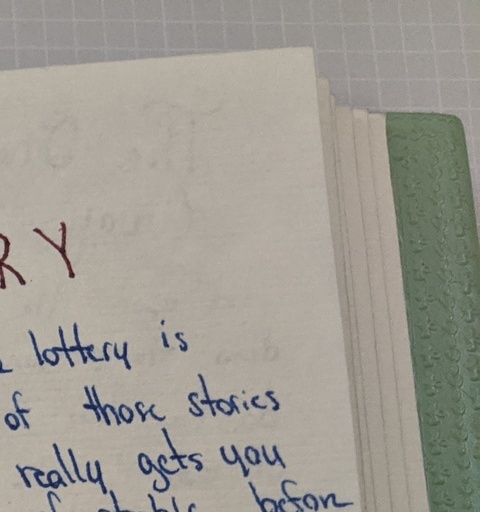 RY
lottery is
of those stories
really gets you